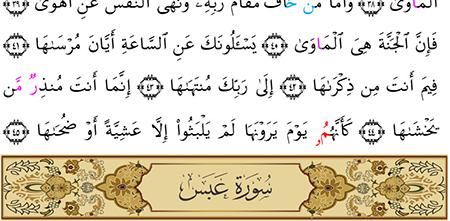 الْمَأْوَىٰ ﴿٣٨﴾ وَأَمَّا مَنْ خَافَ مَقَامَ رَبِّهِ وَنَهَى النَّفْسَ عَنِ الْهَوَىٰ ﴿٣٩﴾
فَإِنَّ الْجَنَّةَ هِيَ الْمَأْوَىٰ ﴿٤٠﴾ يَسْـَٔلُونَكَ عَنِ السَّاعَةِ أَيَّانَ مُرْسَىٰهَا ﴿٤١﴾
فِيمَ أَنتَ مِن ذِكْرَىٰهَا ﴿٤٢﴾ إِلَىٰ رَبِّكَ مُنتَهَىٰهَا ﴿٤٣﴾ إِنَّمَا أَنتَ مُنذِرٌ مَّن
يَخْشَىٰهَا ﴿٤٤﴾ كَأَنَّهُمُۥ يَوْمَ يَرَوْنَهَا لَمْ يَلْبَثُوٓا۟ إِلَّا عَشِيَّةً أَوْ ضُحَىٰهَا ﴿٤٥﴾
سُورَةُ عَبَسَ